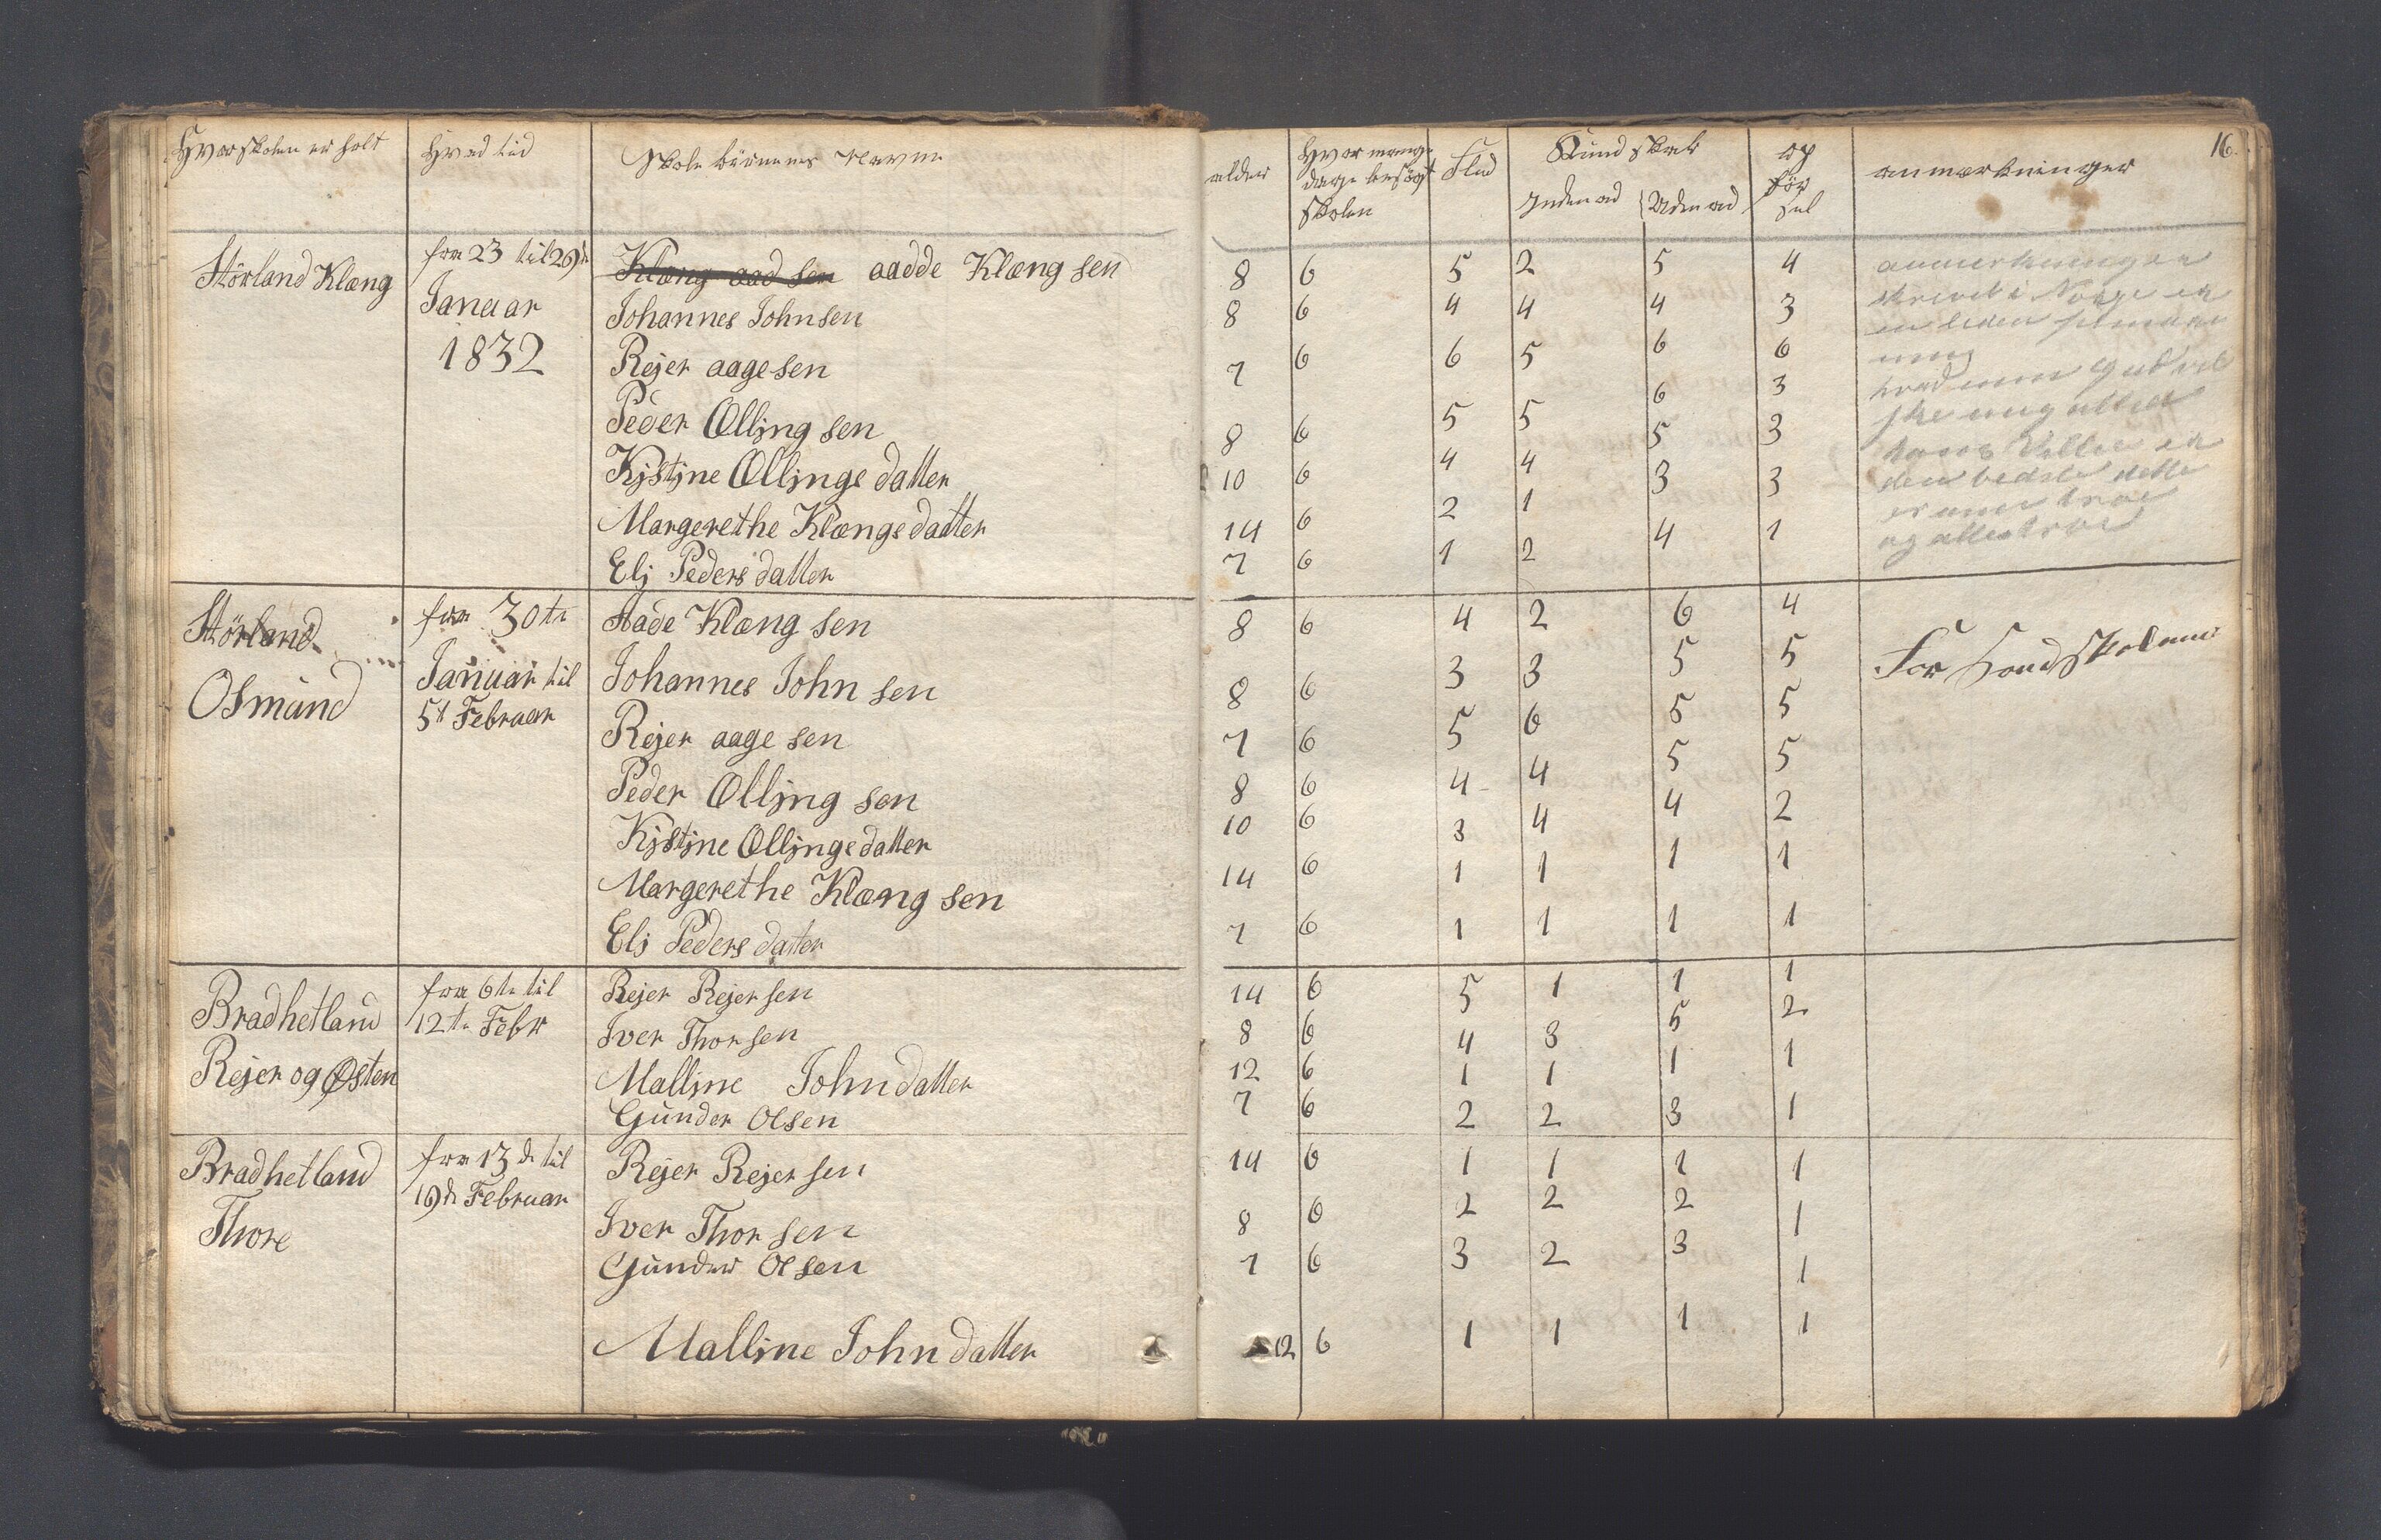 Hvor skolen er holt | Hvad tid | Skole børnenes Navne | alder | Hvor mange dage besögt Skolen | Flid | Kundskab Indenad | Udenad | op för sel | anmerkninger | 16.
Störland Klæng | fra 23 til 29d | Klæng aad sen aadde Klæng sen | 8 | 6 | 5 | 2 | 5 | 4
Januar | Johannes Johnsen | 8 | 6 | 4 | 4 | 4 | 3
1832 | Rejer aagesen | 7 | 6 | 6 | 5 | 6 | 6
Peder Olljng sen | 8 | 6 | 5 | 5 | 6 | 3
Kjstjne Olljngs datter | 10 | 6 | 4 | 4 | 5 | 3
Margerethe Klængs datter | 14 | 6 | 2 | 1 | 3 | 3
Elj Peders datter | 7 | 6 | 1 | 2 | 4 | 1
anmerkningen
skrevet i Norge er
en liden
hvad min Gud vil
ske mig altid
hans Villie er
den bedste dette
er min troe
og alles troe
Störland | fra 30te | Aade Klæng sen | 8 | 6 | 4 | 2 | 6 | 4
Osmund | Januar til | Johannes John sen | 8 | 6 | 3 | 3 | 5 | 5 | For
5t Februar | Rejer aage sen | 7 | 6 | 5 | 6 | 5 | 5
Peder Olljng sen | 8 | 6 | 4 | 4 | 5 | 5
Kjstjne Olljngs datter | 10 | 6 | 3 | 4 | 4 | 2
Margerethe Klæng sen | 14 | 6 | 1 | 1 | 1 | 1
Elj Peders datter | 7 | 6 | 1 | 1 | 1 | 1
Bradhetland | fra 6te til | Rejer Rejersen | 14 | 6 | 5 | 1 | 1 | 1
12te Febr | Iver Thorsen | 8 | 6 | 4 | 3 | 5 | 2
Rejer og Østen | Malljne John datter | 12 | 6 | 1 | 1 | 1 | 1
Gunder Olsen | 7 | 6 | 2 | 2 | 3 | 1
Bradhetland | fra 13de til | Rejer Rejersen | 14 | 6 | 1 | 1 | 1 | 1
Thore | 19de Februar | Iver Thorsen | 8 | 6 | 2 | 2 | 2 | 1
Gunder Olsen | 7 | 6 | 3 | 2 | 3 | 1
Malljne John datter | 12 | 6 | 1 | 1 | 1 | 1